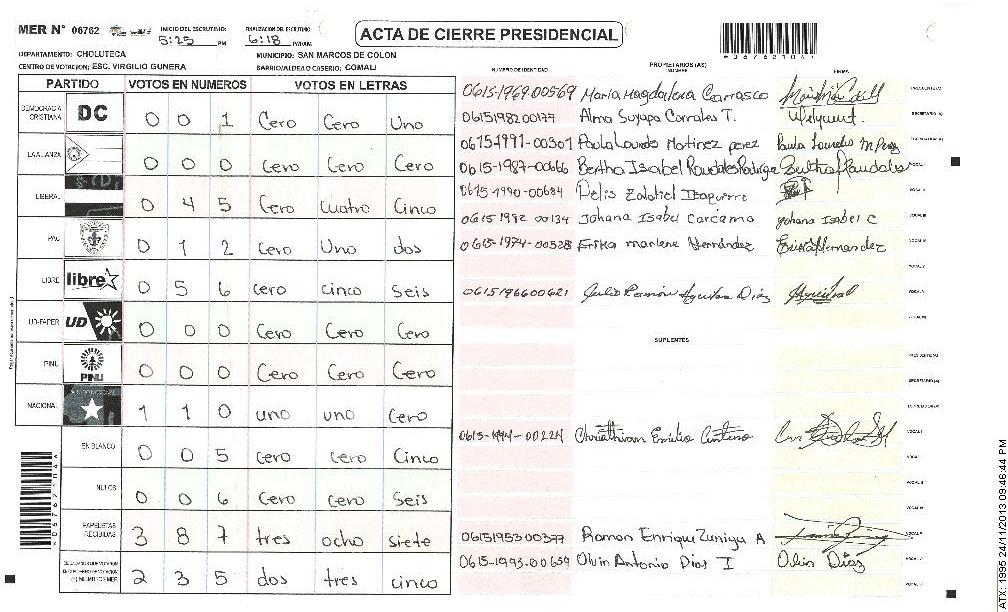 MER N° 06762 INICIO DEL ESCRUTINIO: 5:25 PM FINALIZACION DEL ESCRUTINIO 6:18 PM/DAM
ACTA DE CIERRE PRESIDENCIAL
*06762104*
DEPARTAMENTO: CHOLUTECA MUNICIPIO: SAN MARCOS DE COLON
CENTRO DE VOTACION: ESC. VIRGILIO GUNERA BARRIO/ALDEA O CASERIO: COMALI
PARTIDO VOTOS EN NUMEROS VOTOS EN LETRAS
DEMOCRACIA CRISTIANA DC 0 0 1 Cero Cero Uno
LA ALIANZA 0 0 0 Cero Cero Cero
LIBERAL 0 4 5 Cero Cuatro Cinco
PAC 0 1 2 Cero Uno dos
LIBRE libre 0 5 6 Cero cinco Seis
UD-FAPER UD 0 0 0 Cero Cero Cero
PINU PINU 0 0 0 Cero Cero Cero
NACIONAL 1 1 0 uno uno Cero
EN BLANCO 0 0 5 Cero Cero Cinco
NULOS 0 0 6 Cero Cero Seis
PAPELETAS RECIBIDAS 3 8 7 tres ocho siete
2 3 5 dos tres cinco
NUMERO DE IDENTIDAD PROPIETARIOS (AS) NOMBRE FIRMA
0615-1969-00569 Maria Magdalena Carrasco
0615198200177 Alma Suyapa Corrales T.
0615-1991-00301 Paula Lourdes Martinez perez Paula Lourdes M Perez
0615-1987-00666 Bertha Isabel Raudales Rodrigez Bertha Raudales
0615-1990-00684
0615 1992 00134 Johana Isabel Carcamo Johana Isabel C
0615-1974-00528 Erika marlene Hernández Erika Hernandez
0615196600621 Julio Ramón Aguilera Diaz
SUPLENTES
0615-1994-00224 Emilio
0615195300377 Ramon Enrique Zuniga A
0615-1993-00659 Olvin Antonio Dias I Olvin Diaz
ATX: 1995 24/11/2013 09:46:44 PM